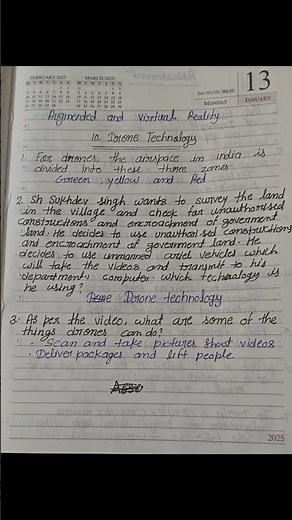 Assessment
FEBRUARY 2025
MARCH 2025
13
MONDAY
JANUARY
Augmended and Virtual Reality
10. Drone Technology
1. For drones, the airspace in india is
divided into these three zones
Green, yellow and Red
2. Sh Sukhdev singh wants to survey the land
in the village and check for unauthorised
constructions and encroachment of government
land. He decides to use unauthorised constructions
and encroachment of government land. He
decides to use unmanned ariel vehicles which
will take the videos and transmit to his
department computer which technology is
he using?
Drone technology
3. As per the video, what are some of the
things drones can do?
· Scan and take pictures, shoot videos
· Deliver packages and lift people
2025